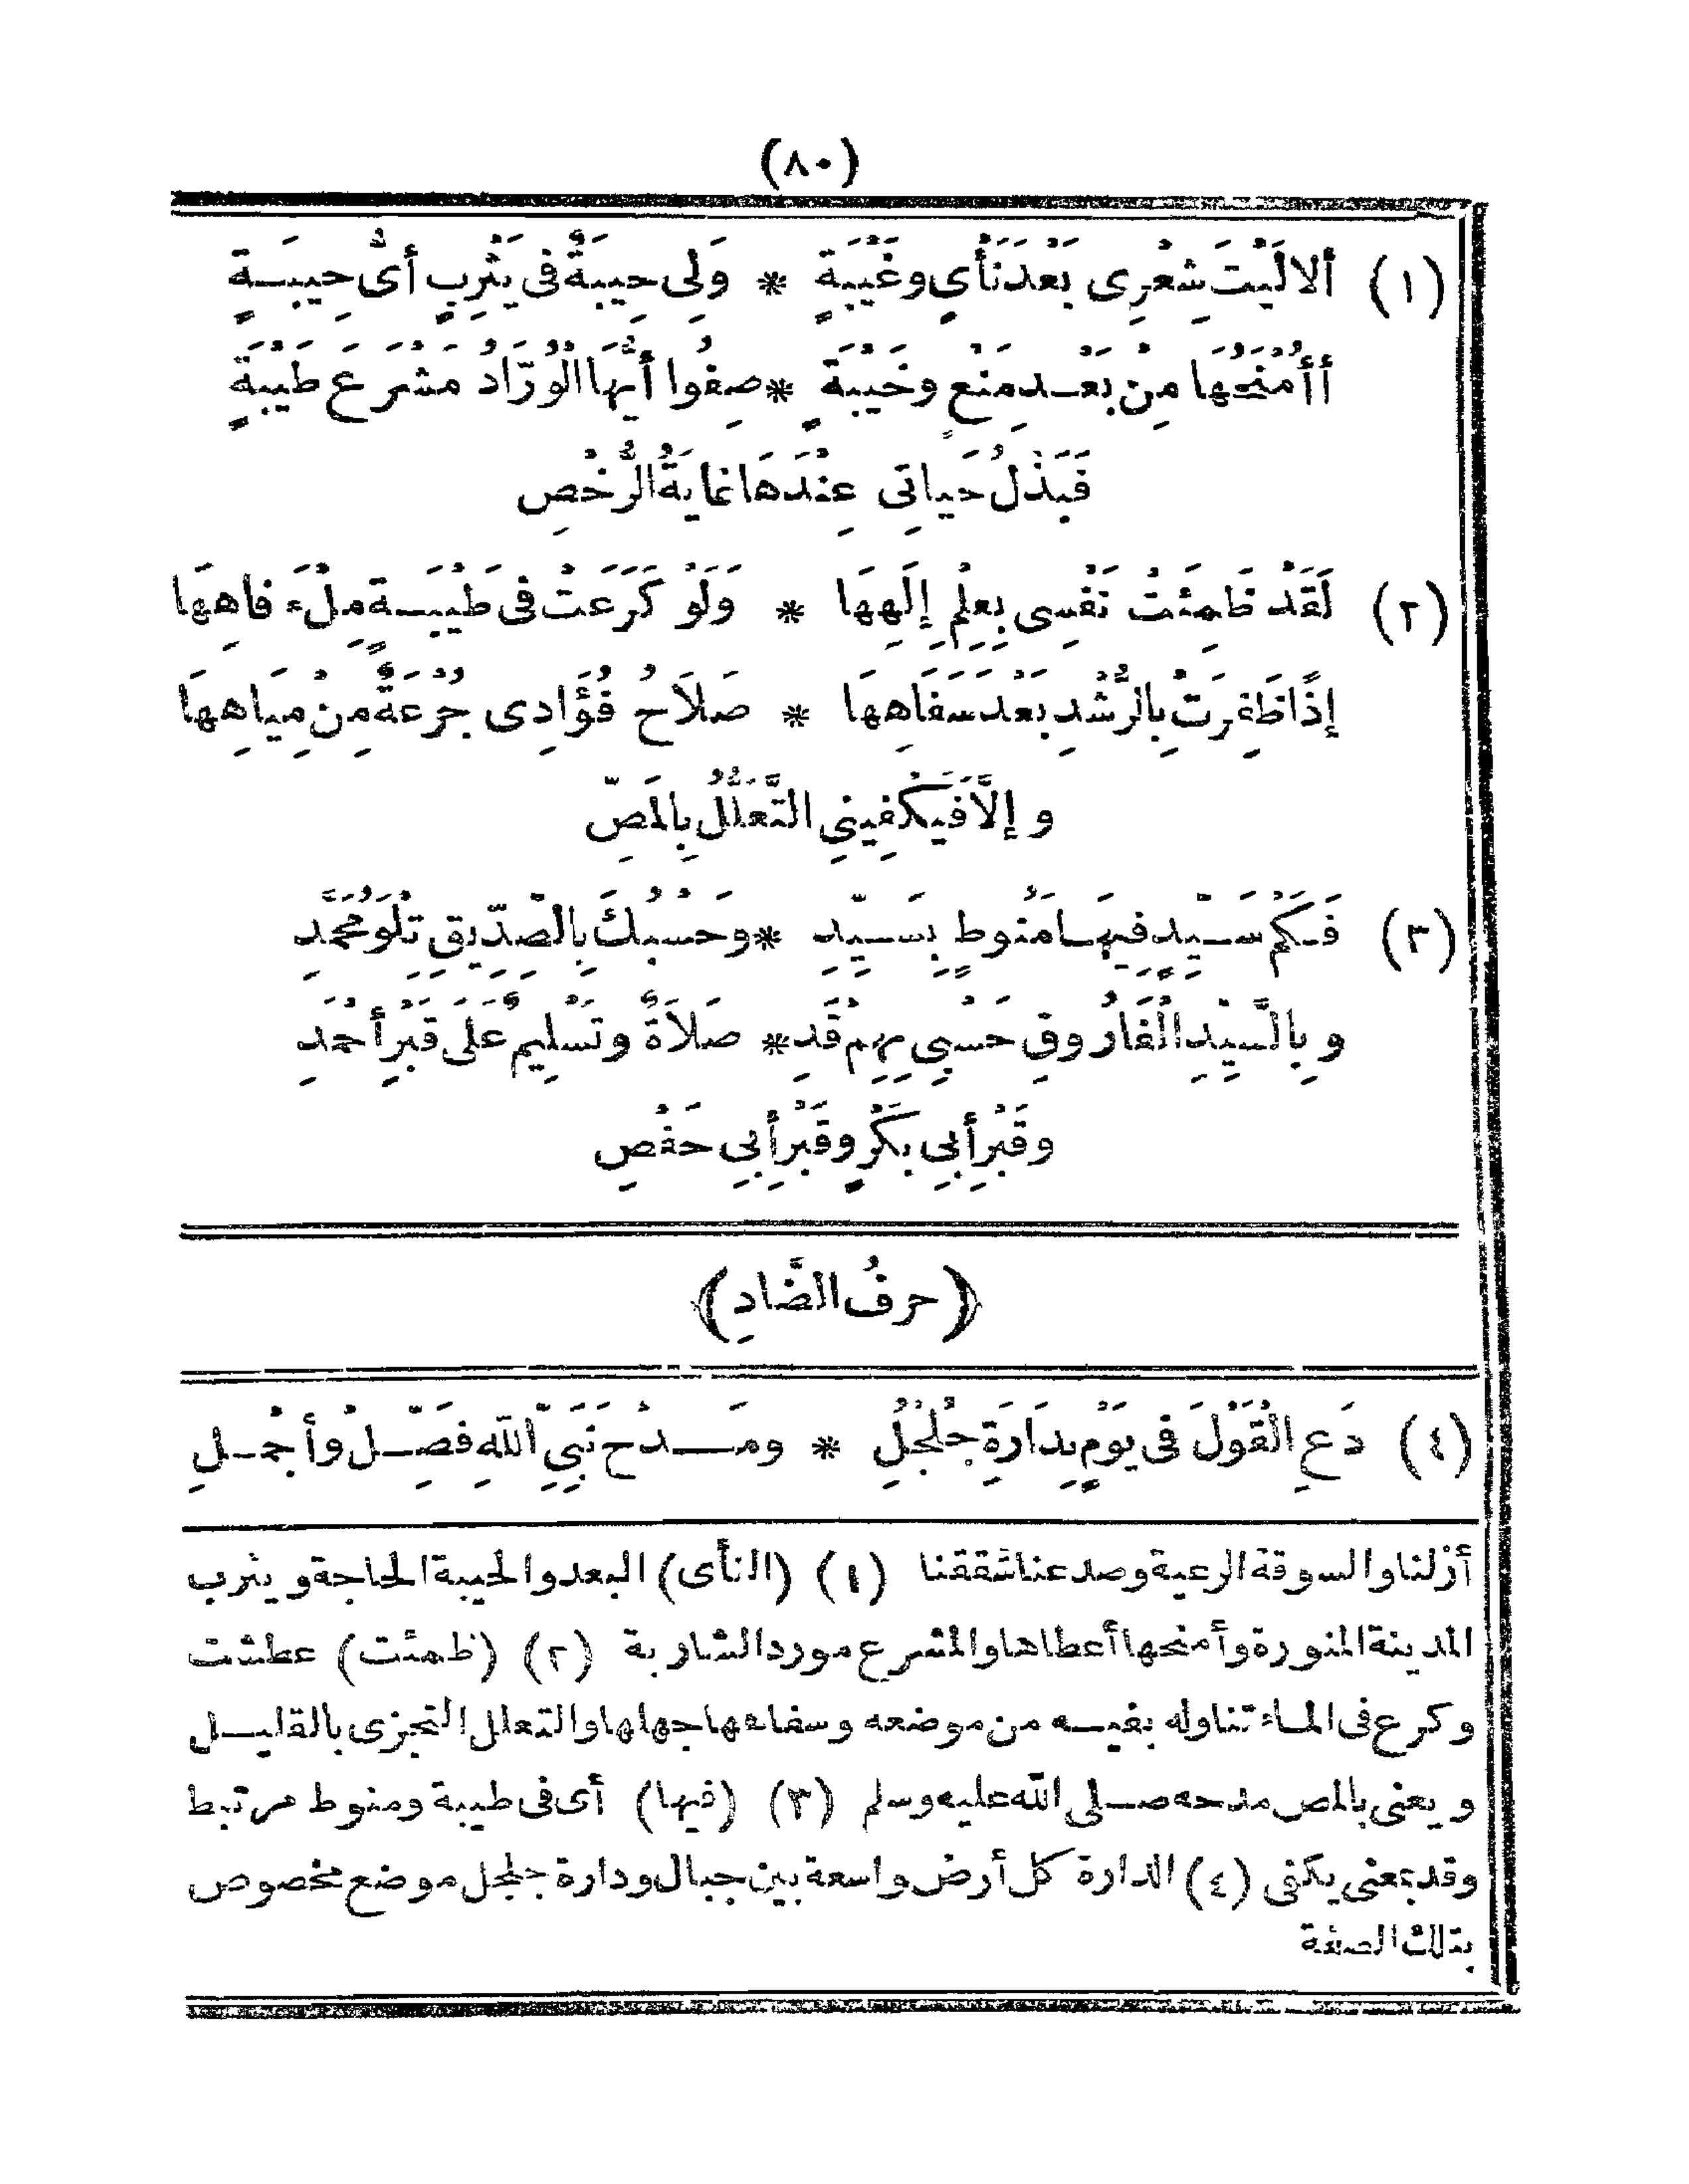 (٨٠)
(١) ألا لَيْتَ شِعْرِى بَعْدَ نَأْىٍ وغَيْبَةٍ * وَلِى حِيبَةٌ فى يَثْرِبٍ أىُّ حِيبَـةٍ
أأُمْنَحُهَا مِنْ بَعْـدِ مَنْعٍ وخَيْبَةٍ * صِفُوا أيُّهَا الْوُرَّادُ مَشْرَعَ طَيْبَةٍ
فَبَذْلُ حَياتِى عِنْدَهَا غايَةُ الرُّخْصِ
(٢) لَقَدْ ظَمِئَتْ نَفْسِى بِعِلْمِ إِلَهِهَا * وَلَوْ كَرَعَتْ فى طَيْبَـةٍ مِلْءَ فاهِهَا
إذًا ظَفِرَتْ بِالرُّشْدِ بَعْدَ سَفَاهِهَا * صَلاَحُ فُؤَادِى جُرْعَةٌ مِنْ مِيَاهِهَا
و إلاَّ فَيَكْفِينِى التَّعَلُّلُ بِالمَصِّ
(٣) فَـكَمْ سَـيِّدٍ فِيهَـا مَنُوطٍ بِسَـيِّدِ * وحَسْبُكَ بِالصِّدِّيقِ تِلْوَ مُحَمَّدِ
و بِالسَّيِّدِ الْفَارُوقِ حَسْبِى بِهِمْ قَدِ * صَلاَةٌ وتَسْلِيمٌ عَلَى قَبْرِ أحْمَدِ
وقَبْرِ أبِى بَكْرٍ وقَبْرِ أبِى حَفْصِ
(حرفُ الضَّادِ)
(٤) دَعِ الْقَوْلَ فى يَوْمٍ بِدَارَةِ جُلْجُلِ * ومَـــدْحَ نَبِىِّ اللّٰهِ فَصِّـلْ وأجْمِـلِ
أزلنا والسوقة الرعية وصدعنا شققنا (١) (النأى) البعد والحيبة الحاجة و يثرب
المدينة المنورة وأمنحها أعطاها والمشرع مورد الشاربة (٢) (ظمئت) عطشت
وكرع فى المـاء تناوله بفيـه من موضعه وسفاهها جهلها والتعلل التجزى بالقليـل
و يعنى بالمص مدحه صـلى الله عليه وسلم (٣) (فيها) أى فى طيبة ومنوط مرتبط
وقد بمعنى يكفى (٤) الدارة كل أرض واسعة بين جبال ودارة جلجل موضع مخصوص
بتلك الصفة